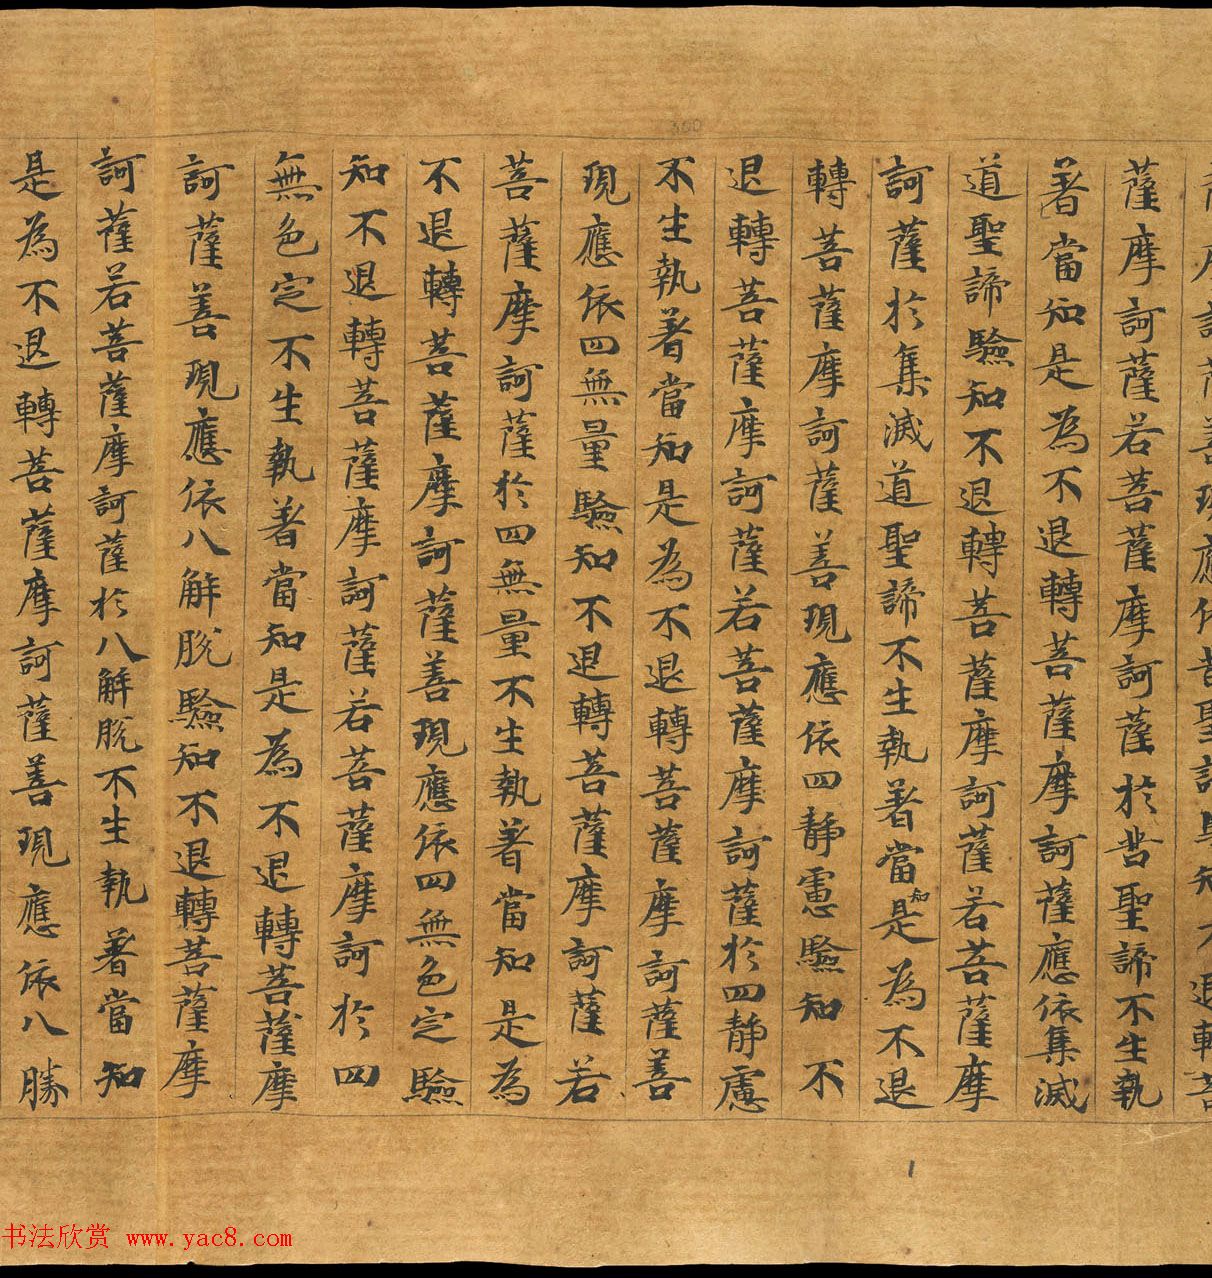 薩摩訶薩若菩薩摩訶薩於苦聖諦不生執
著當知是為不退轉菩薩摩訶薩應依集滅
道聖諦驗知不退轉菩薩摩訶薩若菩薩摩
訶薩於集滅道聖諦不生執著當知是為不退
轉菩薩摩訶薩善現應依四靜慮驗知不
退轉菩薩摩訶薩若菩薩摩訶薩於四靜慮
不生執著當知是為不退轉菩薩摩訶薩善
現應依四無量驗知不退轉菩薩摩訶薩若
菩薩摩訶薩於四無量不生執著當知是為
不退轉菩薩摩訶薩善現應依四無色定驗
知不退轉菩薩摩訶薩若菩薩摩訶於四
無色定不生執著當知是為不退轉菩薩摩
訶薩善現應依八解脫驗知不退轉菩薩摩
訶薩若菩薩摩訶薩於八解脫不生執著當知
是為不退轉菩薩摩訶薩善現應依八勝
1
书法欣赏 www.yac8.com